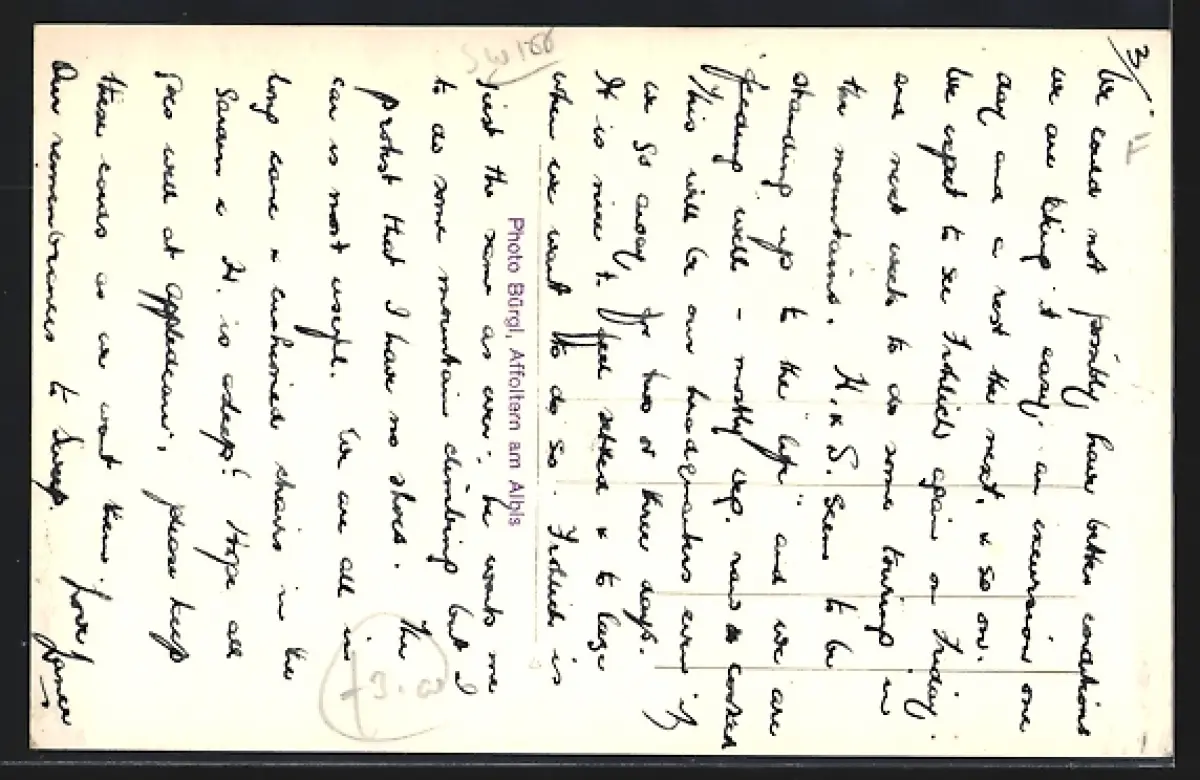 3/
We could not possibly have better conditions
we are taking it easy, an excursion one
day and a rest the next, & so on.
We expect to see Frohlich again on Friday.
and next week to do some touring in
the mountains. H. & S. seem to be
standing up to the "life" and we are
feeding well - mostly veg. raw & cooked
This will be our headquarters even if
we go away, for two or three days.
It is nice to feel settled & to laze
when we want to do so. Frohlich is
just the same as ever; he wants me
to do some mountain climbing but I
protest that I have no shoes. The
car is most useful. We are all in
long cane & cushioned chairs in the
& H. is asleep! Hope all
goes well at appledean; please keep
these cards as we want them. Love
Our remembrances to Sweep. James
Photo Bürgl, Affoltern am Albis
SWISS